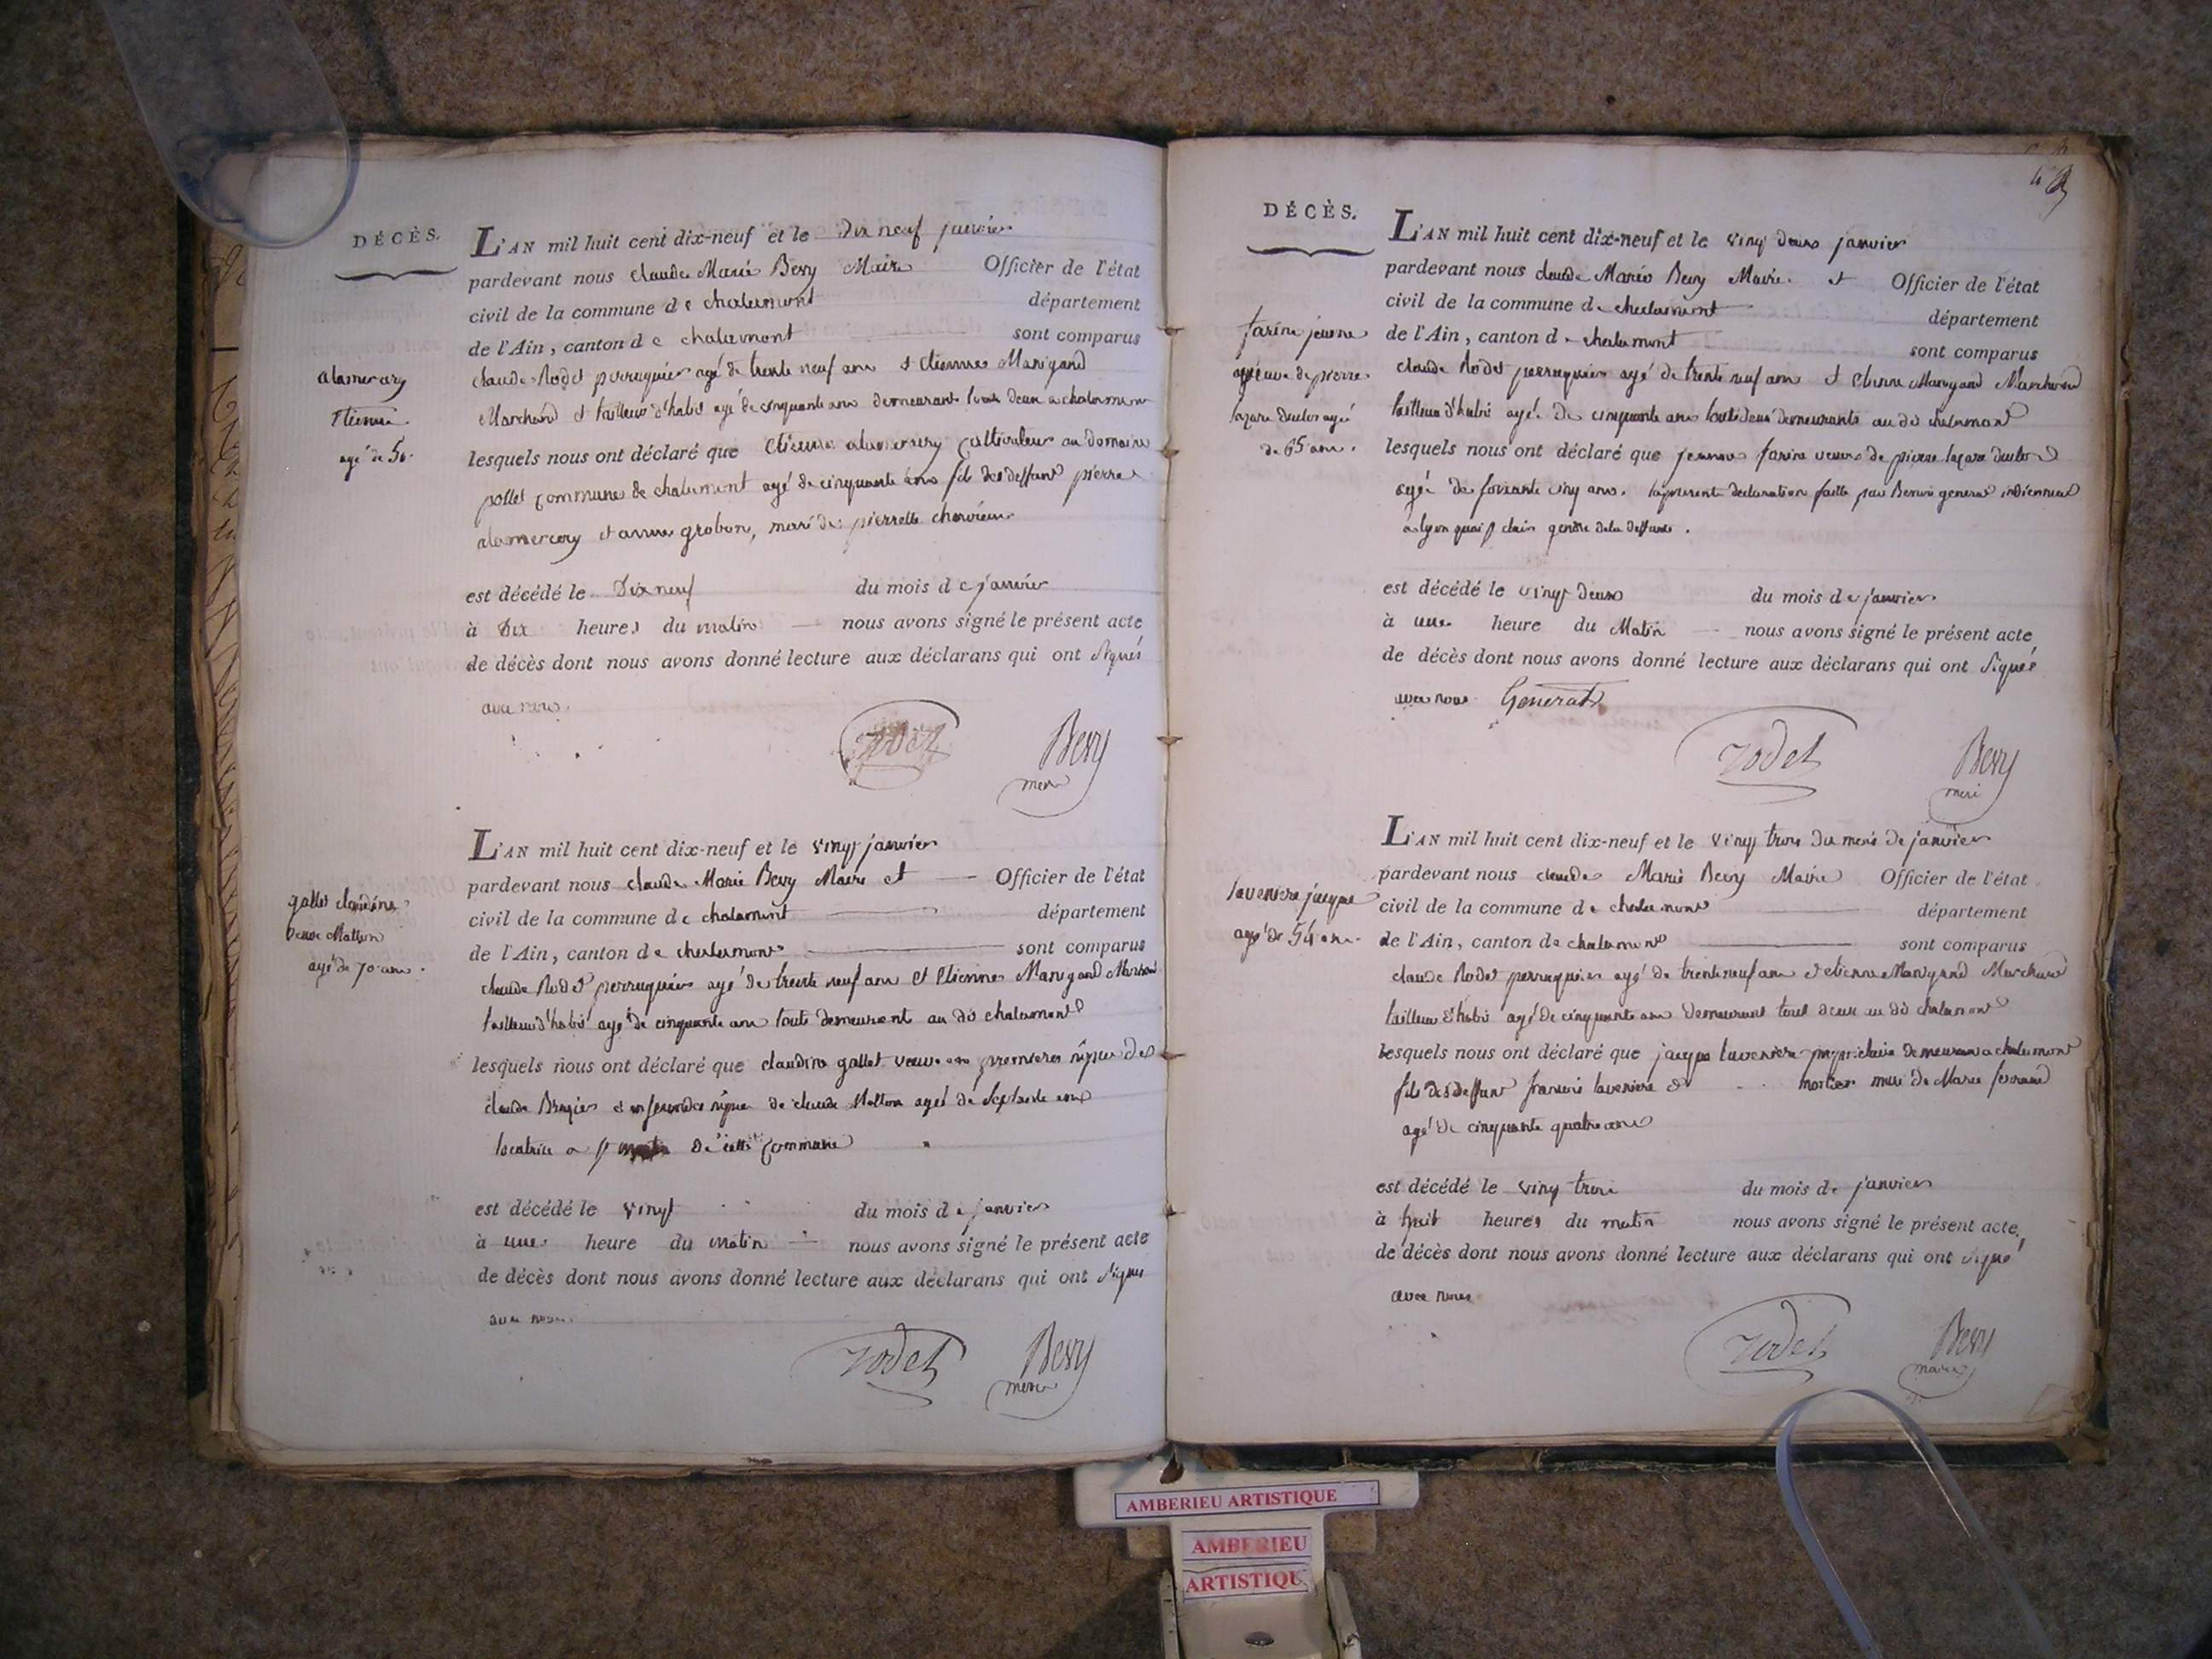 DÉCÈS.
L'AN mil huit cent dix-neuf et le Dix neuf janvier
pardevant nous claude Marie Bevy Maire Officier de l'état
civil de la commune de chalamont département
de l'Ain, canton de chalamont sont comparus
alamercery
Etienne
agé de 50.
claude Rodet perruquier agé de trente neuf ans et Etienne Manigand
Marchand et tailleur d'habit agé de cinquante ans demeurant tous deux a chalamont
lesquels nous ont déclaré que Etienne alamercery cultivateur au domaine
pollet commune de chalamont agé de cinquante ans fils des deffunt pierre
alamercery et anne grobon, mari de pierrette
est décédé le Dix neuf du mois de janvier
à Dix heures du matin nous avons signé le présent acte
de décès dont nous avons donné lecture aux déclarans qui ont signés
avec nous.
Rodet Bevy
maire
L'AN mil huit cent dix-neuf et le vingt janvier
pardevant nous claude Marie Bevy Maire et Officier de l'état
civil de la commune de chalamont département
de l'Ain, canton de chalamont sont comparus
gallet claudine
veuve Matton
agé de 70 ans.
claude Rodet perruquier agé de trente neuf ans et Etienne Manigand Marchand
tailleur d'habit agé de cinquante ans touts demeurant au dit chalamont
lesquels nous ont déclaré que claudine gallet veuve en premieres des
claude et en secondes de claude Matton agé de septante ans
locatrice a de cette commune
est décédé le vingt du mois de janvier
à une heure du matin nous avons signé le présent acte
de décès dont nous avons donné lecture aux déclarans qui ont signés
avec nous.
Rodet Bevy
maire
DÉCÈS.
L'AN mil huit cent dix-neuf et le vingt deux janvier
pardevant nous claude Marie Bevy Maire et Officier de l'état
civil de la commune de chalamont département
de l'Ain, canton de chalamont sont comparus
farine jeanne
veuve de pierre
lazare agé
de 65 ans.
claude Rodet perruquier agé de trente neuf ans et Etienne Manigand Marchand
tailleur d'habit agé de cinquante ans touts deux demeurants au dit chalamont
lesquels nous ont déclaré que jeanne farine veuve de pierre lazare
agé de soixante cinq ans. la presente declaration faitte par general indienneur
a lyon quai gendre de la deffunte.
est décédé le vingt deux du mois de janvier
à une heure du Matin nous avons signé le présent acte
de décès dont nous avons donné lecture aux déclarans qui ont signés
avec nous General
Rodet Bevy
maire
L'AN mil huit cent dix-neuf et le vingt trois du mois de janvier
pardevant nous claude Marie Bevy Maire Officier de l'état
civil de la commune de chalamont département
de l'Ain, canton de chalamont sont comparus
laveniere jacque
agé de 54 ans.
claude Rodet perruquier agé de trente neuf ans et etienne Manigand Marchand
tailleur d'habit agé de cinquante ans demeurant tous deux au dit chalamont
lesquels nous ont déclaré que jacque laveniere proprietaire demeurant a chalamont
fils des deffunt francois laveniere et mortier mari de Marie ferrand
agé de cinquante quatre ans
est décédé le vingt trois du mois de janvier
à huit heures du matin nous avons signé le présent acte
de décès dont nous avons donné lecture aux déclarans qui ont signé
avec nous
Rodet Bevy
maire
AMBERIEU ARTISTIQUE
AMBERIEU
ARTISTIQU